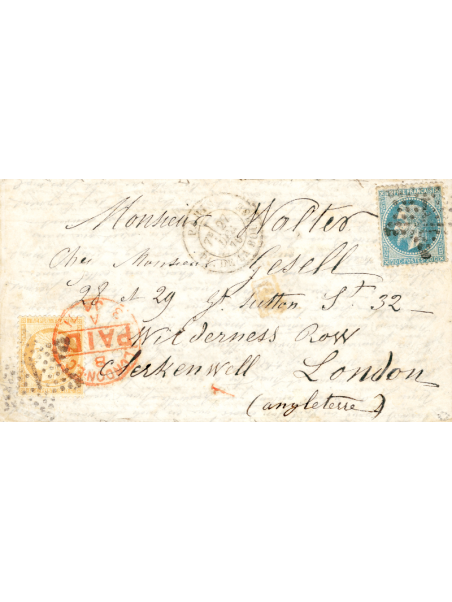 Monsieur Walter
Chez Monsieur Gesell
28 et 29 Gt Sutton St 32 -
Wilderness Row
Clerkenwell London
(angleterre)
PAID